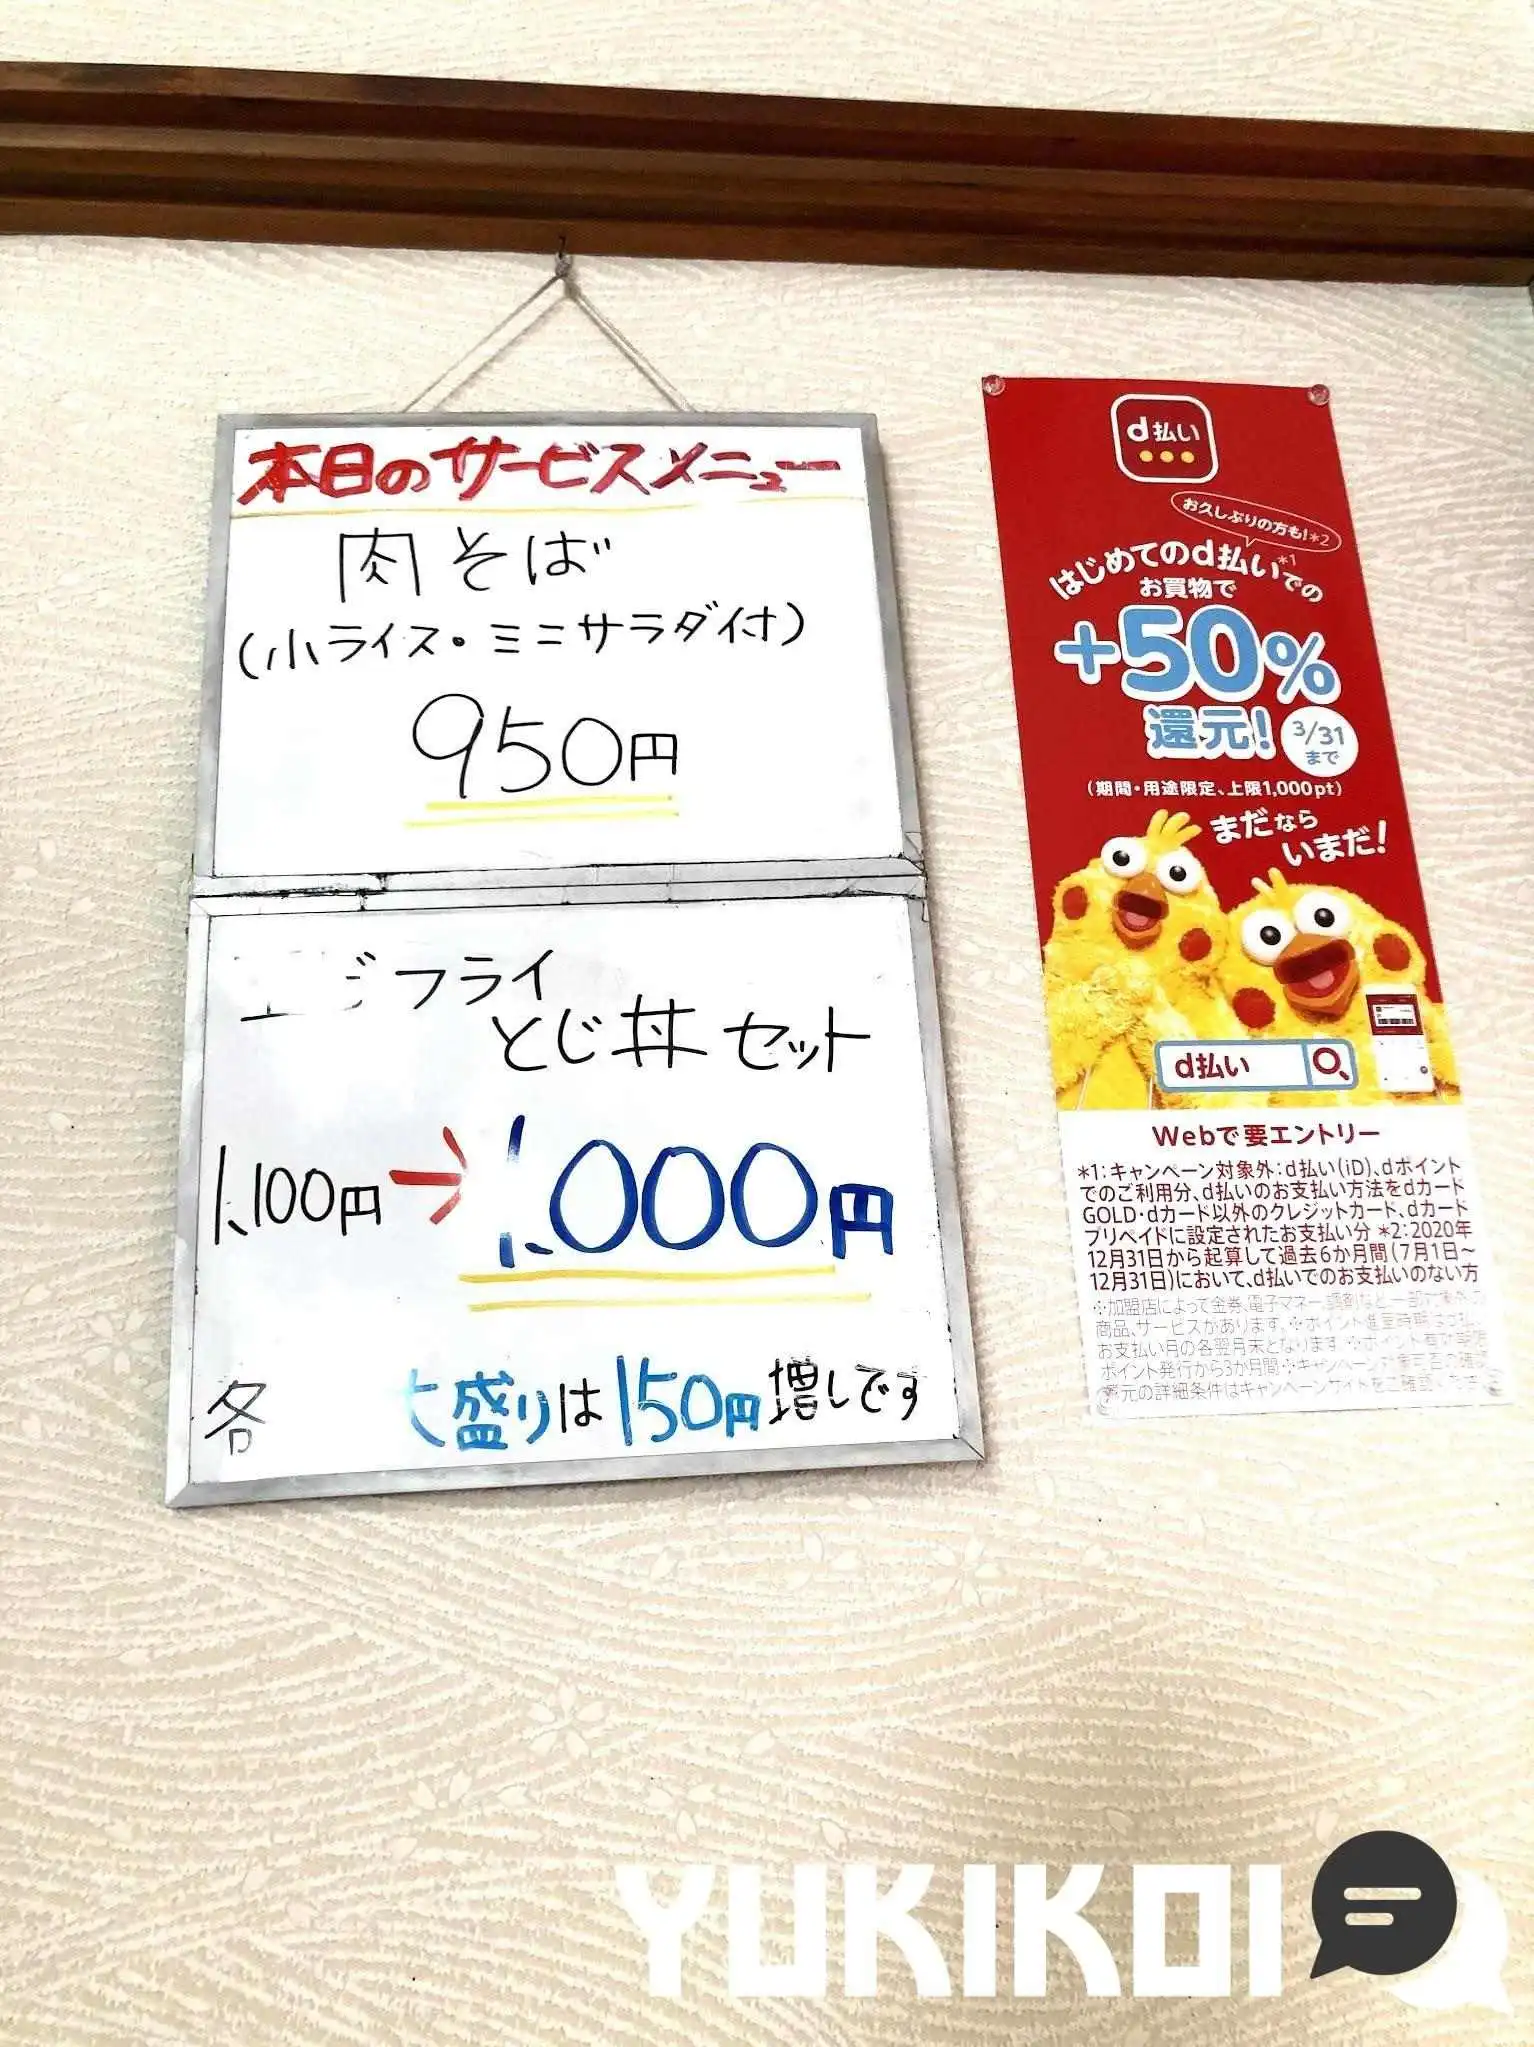 本日のサービスメニュー
肉そば
(小ライス・ミニサラダ付)
950円
フライ
とじ丼セット
1,100円→1,000円
各 大盛りは150円増しです
d払い
お久しぶりの方も!*2
はじめてのd払い*1での
お買物で
+50%
還元!
3/31
まで
(期間・用途限定、上限1,000pt)
まだなら
いまだ!
d払い
Webで要エントリー
*1:キャンペーン対象外:d払い(iD)、dポイント
でのご利用分、d払いのお支払い方法をdカード
GOLD・dカード以外のクレジットカード、dカード
プリペイドに設定されたお支払い分 *2:2020年
12月31日から起算して過去6か月間(7月1日~
12月31日)において、d払いでのお支払いのない方
※加盟店によって金券、電子マネー、調剤など一部対象外の
商品、サービスがあります。※ポイント進呈時期はd払い
お支払い月の各翌月末となります ※ポイント有効期限
ポイント発行から3か月間※キャンペーン
還元の詳細条件はキャンペーンサイトをご確認
YUKIKOI